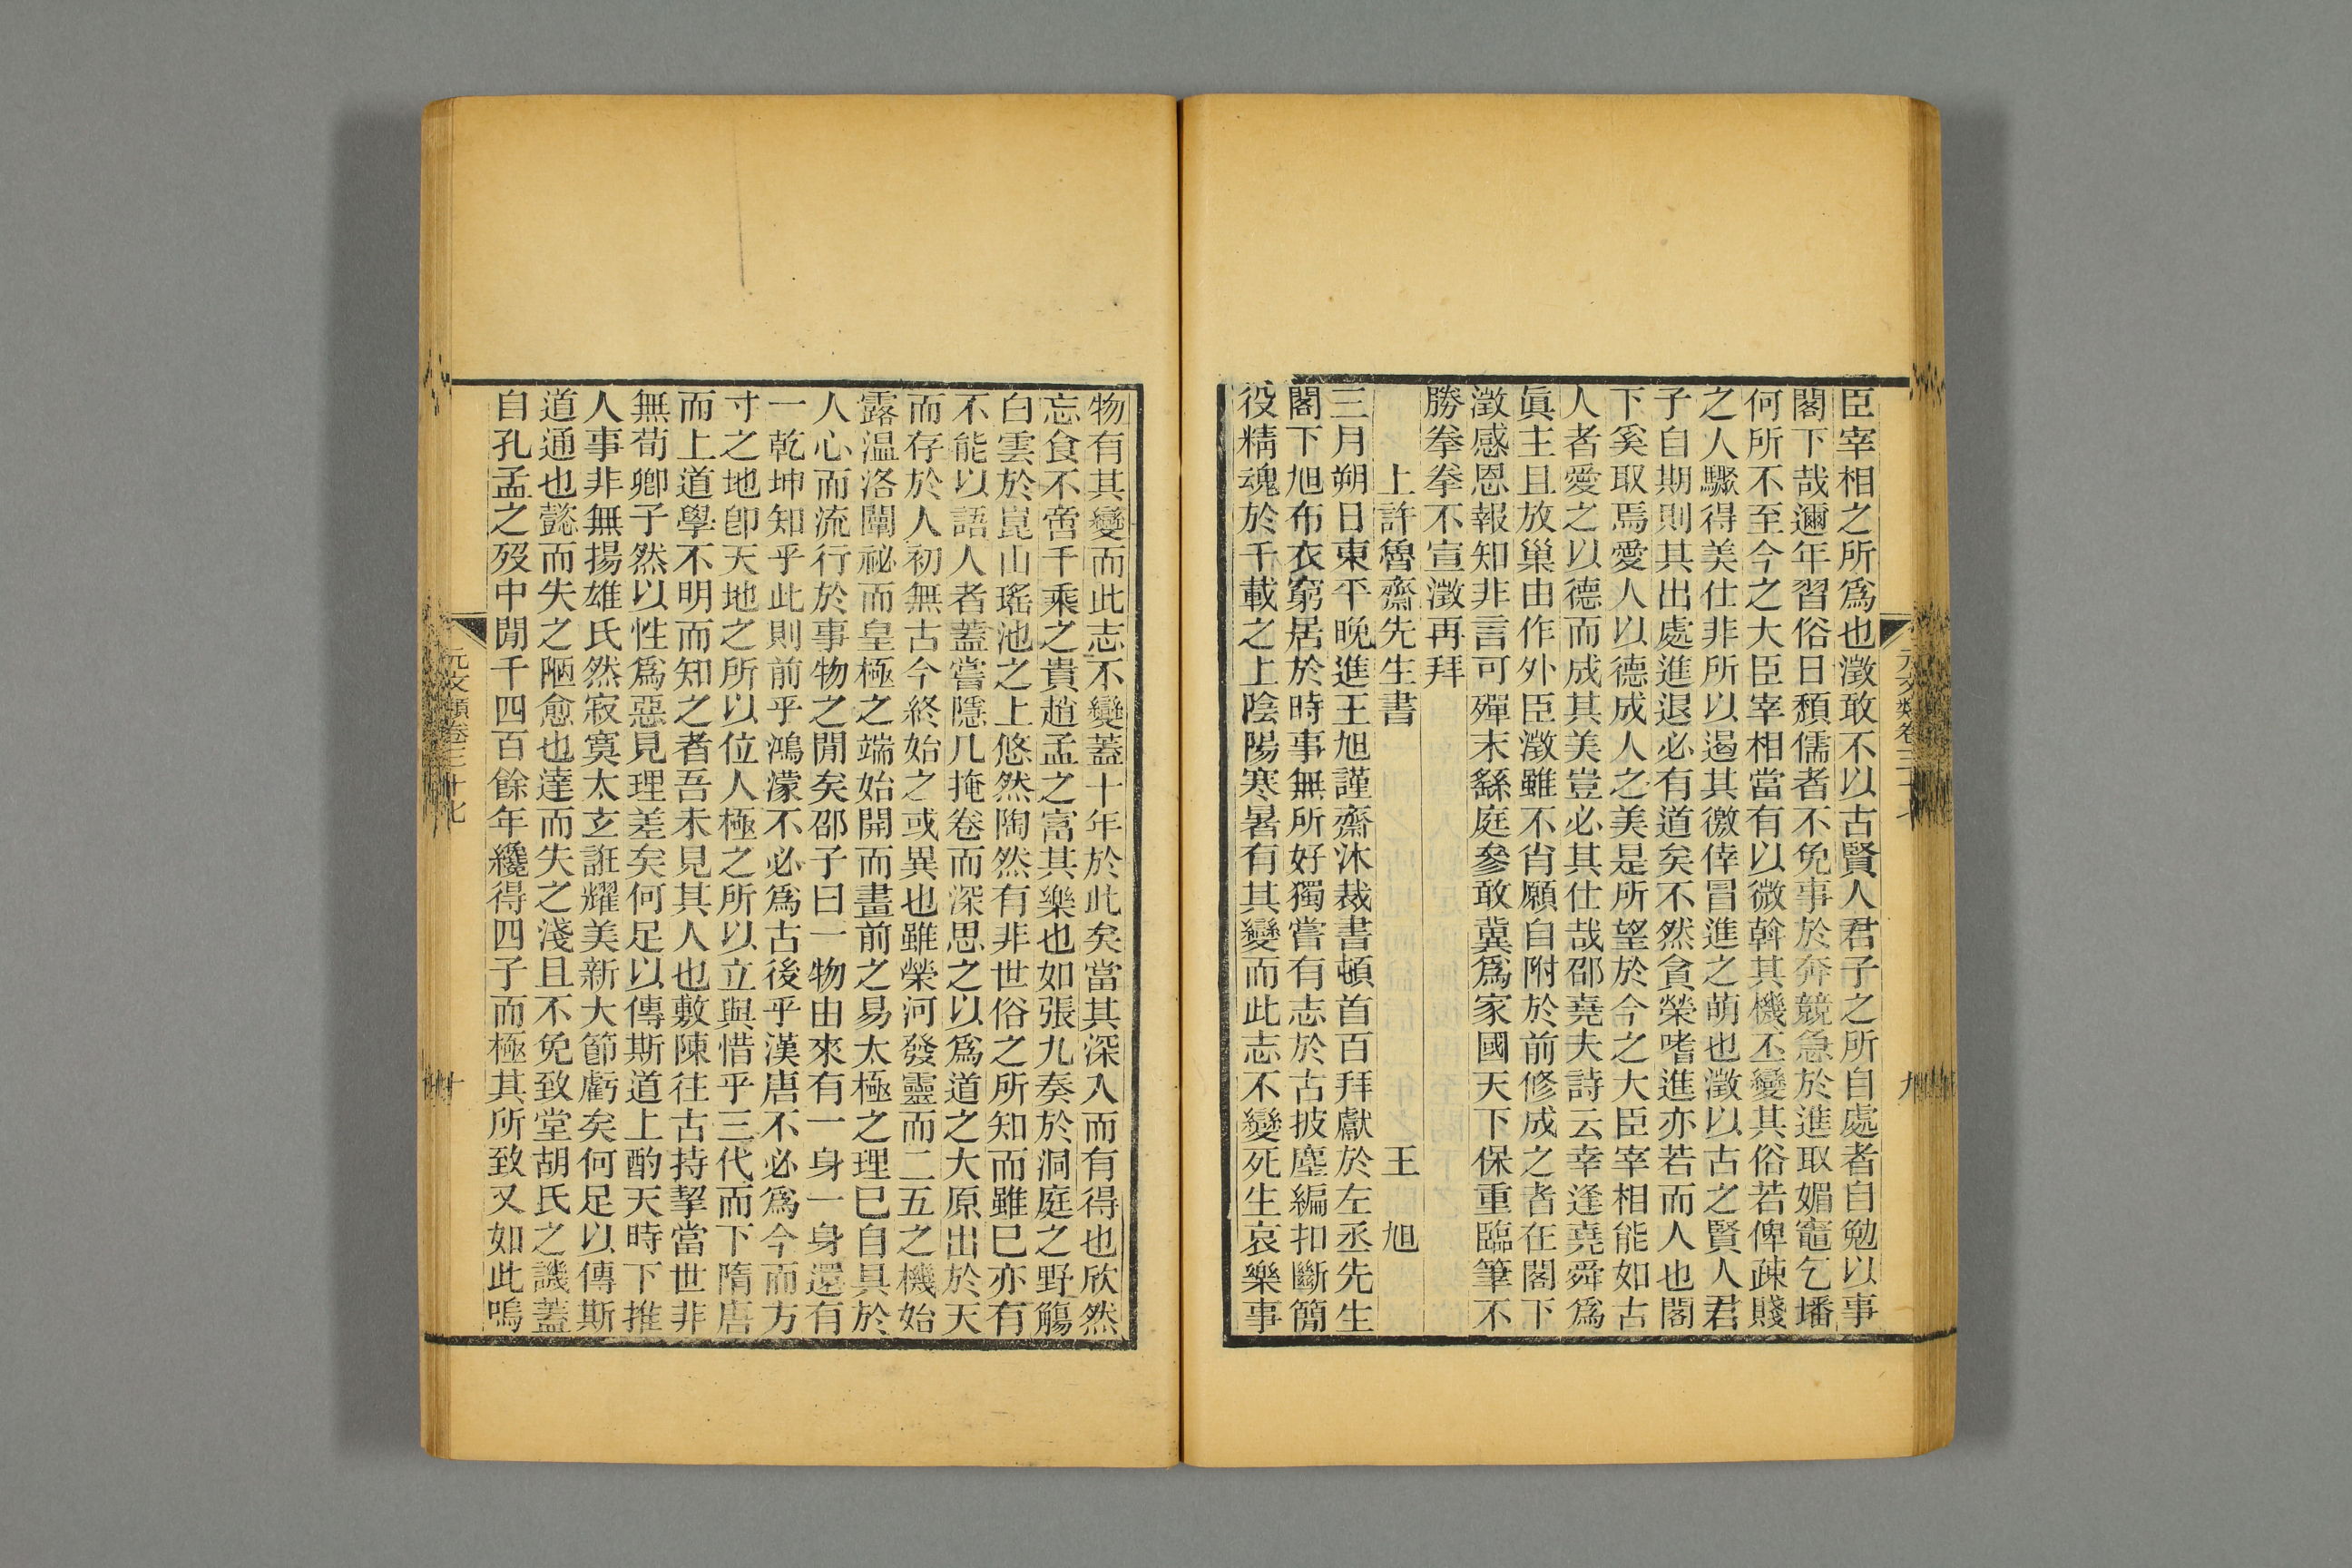 臣宰相之所爲也澂敢不以古賢人君子之所自處者自勉以事
閣下哉邇年習俗日頹儒者不免事於奔競急於進取媚竈乞墦
何所不至今之大臣宰相當有以微斡其機丕變其俗若俾疎賤
之人驟得美仕非所以遏其徼倖冒進之萌也澂以古之賢人君
子自期則其出處進退必有道矣不然貪榮嗜進亦若而人也閣
下奚取焉愛人以德成人之美是所望於今之大臣宰相能如古
人者愛之以德而成其美豈必其仕哉邵堯夫詩云幸逢堯舜爲
眞主且放巢由作外臣澂雖不肖願自附於前修成之者在閣下
澂感恩報知非言可殫末繇庭參敢冀爲家國天下保重臨筆不
勝拳拳不宣澂再拜
上許魯齋先生書 王旭
三月朔日東平晩進王旭謹齋沐裁書頓首百拜獻於左丞先生
閣下旭布衣窮居於時事無所好獨嘗有志於古披塵編扣斷簡
役精魂於千載之上陰陽寒暑有其變而此志不變死生哀樂事
物有其變而此志不變蓋十年於此矣當其深入而有得也欣然
忘食不啻千乘之貴趙孟之富其樂也如張九奏於洞庭之野觴
白雲於崑山瑤池之上悠然陶然有非世俗之所知而雖巳亦有
不能以語人者蓋嘗隱几掩卷而深思之以爲道之大原出於天
而存於人初無古今終始之或異也雖榮河發靈而二五之機始
露温洛闡祕而皇極之端始開而畫前之易太極之理巳自具於
人心而流行於事物之閒矣邵子曰一物由來有一身一身還有
一乾坤知乎此則前乎鴻濛不必爲古後乎漢唐不必爲今而方
寸之地卽天地之所以位人極之所以立與惜乎三代而下隋唐
而上道學不明而知之者吾未見其人也敷陳往古持挈當世非
無荀卿子然以性爲惡見理差矣何足以傳斯道上酌天時下推
人事非無揚雄氏然寂寞太玄誑耀美新大節虧矣何足以傳斯
道通也懿而失之陋愈也達而失之淺且不免致堂胡氏之譏蓋
自孔孟之歿中閒千四百餘年纔得四子而極其所致又如此嗚
元文類卷三十七
九
元文類卷三十七
十